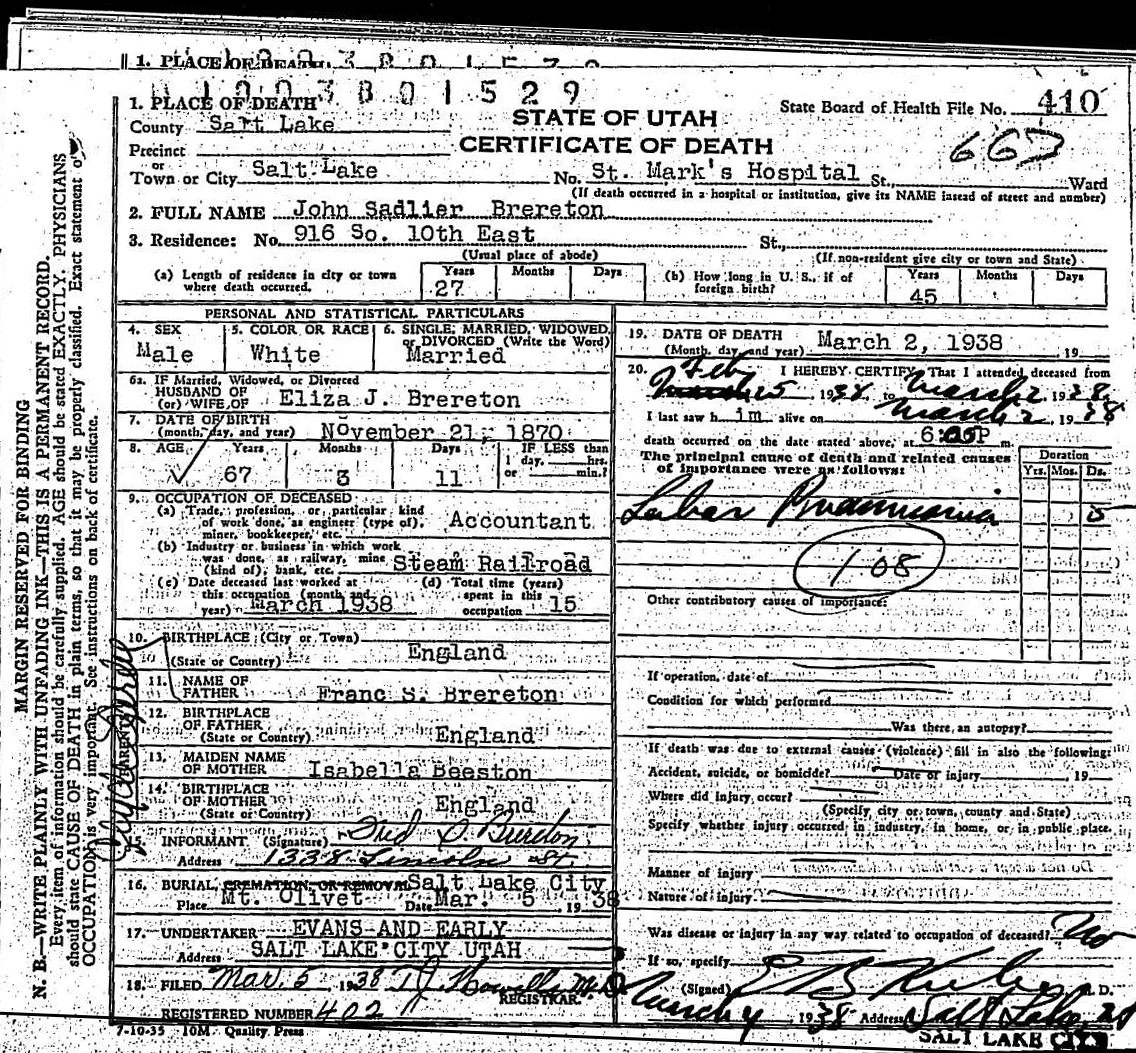 1. PLACE OF DEATH
1003801529
1. PLACE OF DEATH
County Salt Lake
Precinct
or
Town or City Salt Lake
STATE OF UTAH
CERTIFICATE OF DEATH
State Board of Health File No. 410
No. St. Mark's Hospital St., Ward
(If death occurred in a hospital or institution, give its NAME insead of street and number)
2. FULL NAME John Sadlier Brereton
3. Residence: No. 916 So. 10th East St.,
(Usual place of abode) (If non-resident give city or town and State)
(a) Length of residence in city or town where death occurred. Years 27 Months Days
(b) How long in U. S., if of foreign birth? Years 45 Months Days
PERSONAL AND STATISTICAL PARTICULARS
4. SEX Male
5. COLOR OR RACE White
6. SINGLE, MARRIED, WIDOWED, or DIVORCED (Write the Word) Married
6a. IF Married, Widowed, or Divorced
HUSBAND OF
(or) WIFE OF Eliza J. Brereton
7. DATE OF BIRTH
(month, day, and year) November 21, 1870
8. AGE Years 67 Months 3 Days 11 IF LESS than 1 day, hrs. or min.?
9. OCCUPATION OF DECEASED
(a) Trade, profession, or particular kind
of work done, as engineer (type of),
miner, bookkeeper, etc. Accountant
(b) Industry or business in which work
was done, as railway, mine
(kind of); bank, etc. Steam Railroad
(c) Date deceased last worked at
this occupation (month and
year) March 1938
(d) Total time (years)
spent in this
occupation 15
10. BIRTHPLACE (City or Town)
(State or Country) England
11. NAME OF
FATHER Franc S. Brereton
12. BIRTHPLACE
OF FATHER
(State or Country) England
13. MAIDEN NAME
OF MOTHER Isabella Beeston
14. BIRTHPLACE
OF MOTHER
(State or Country) England
PARENTS
INFORMANT (Signature)
Address 1338 Lincoln St.
16. BURIAL, CREMATION, OR REMOVAL Salt Lake City
Place Mt. Olivet Date Mar. 5 1938
17. UNDERTAKER EVANS AND EARLY
Address SALT LAKE CITY UTAH
18. FILED Mar. 5 1938 T.J. Howells M.D.
REGISTRAR.
REGISTERED NUMBER 402
7-10-35 10M Quality Press
19. DATE OF DEATH
(Month, day, and year) March 2, 1938 19
20. I HEREBY CERTIFY, That I attended deceased from
Feb
March 25 1938, to March 2 1938
I last saw him alive on March 2 1938
death occurred on the date stated above, at 6:05P m.
The principal cause of death and related causes
of importance were as follows:
Duration
Yrs. Mos. Ds.
Lobar Pneumonia 5
108
Other contributory causes of importance:
If operation, date of
Condition for which performed
Was there an autopsy?
If death was due to external causes (violence) fill in also the following:
Accident, suicide, or homicide? Date of injury 19
Where did injury occur?
(Specify city or town, county and State)
Specify whether injury occurred in industry, in home, or in public place.
Manner of injury
Nature of injury
Was disease or injury in any way related to occupation of deceased? No
If so, specify
(Signed) M. D.
March 4 1938 Address Salt Lake
SALT LAKE CITY
MARGIN RESERVED FOR BINDING
N. B.—WRITE PLAINLY WITH UNFADING INK—THIS IS A PERMANENT RECORD.
Every item of information should be carefully supplied. AGE should be stated EXACTLY. PHYSICIANS
should state CAUSE OF DEATH in plain terms, so that it may be properly classified. Exact statement of
OCCUPATION is very important. See instructions on back of certificate.